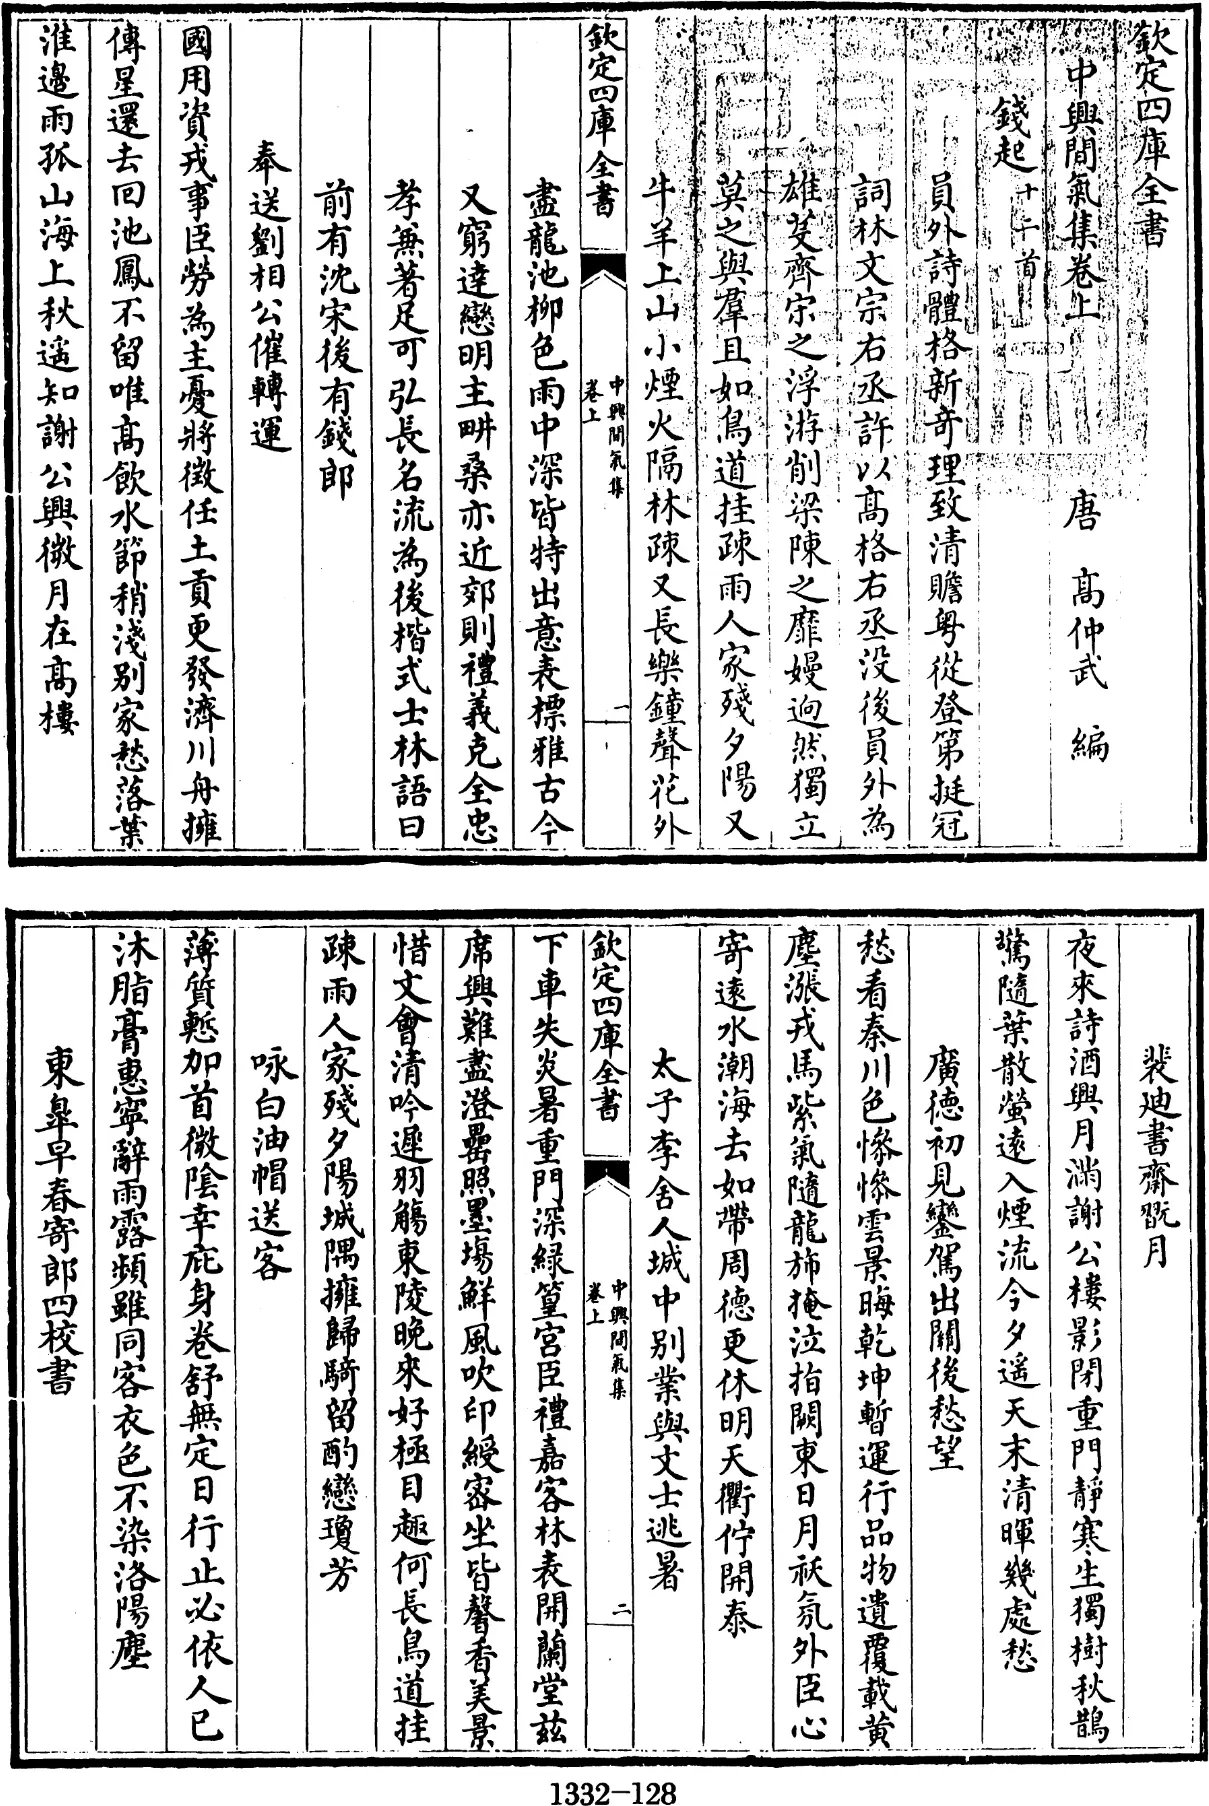 欽定四庫全書
中興間氣集卷上
唐 高仲武 編
錢起十二首
員外詩體格新奇理致清贍粤從登第挺冠
詞林文宗右丞許以高格右丞没後員外為
雄芟齊宋之浮游削梁陳之靡嫚逈然獨立
莫之與羣且如鳥道挂疎雨人家殘夕陽又
牛羊上山小煙火隔林疎又長樂鐘聲花外
欽定四庫全書
中興間氣集
卷上
一
盡龍池柳色雨中深皆特出意表標雅古今
又窮達戀明主畊桑亦近郊則禮義克全忠
孝無著足可弘長名流為後楷式士林語曰
前有沈宋後有錢郎
奉送劉相公催轉運
國用資戎事臣勞為主憂將徴任土貢更發濟川舟擁
傳星還去囘池鳳不留唯高飲水節稍淺别家愁落葉
淮邊雨孤山海上秋遥知謝公興微月在高樓
裴廸書齋翫月
夜來詩酒興月滿謝公樓影閉重門靜寒生獨樹秋鵲
驚隨葉散螢遠入煙流今夕遥天末清暉幾處愁
廣德初見鑾駕出關後愁望
愁看秦川色慘慘雲景晦乾坤暫運行品物遺覆載黄
塵漲戎馬紫氣隨龍斾掩泣指闕東日月祅氛外臣心
寄遠水潮海去如帶周德更休明天衢佇開泰
太子李舍人城中别業與文士逃暑
欽定四庫全書
中興間氣集
卷上
二
下車失炎暑重門深緑篁宫臣禮嘉客林表開蘭堂兹
席興難盡澄罍照墨塲鮮風吹印綬宻坐皆馨香美景
惜文會清吟遲羽觴東陵晚來好極目趣何長鳥道挂
疎雨人家殘夕陽城隅擁歸騎留酌戀瓊芳
咏白油帽送客
薄質慙加首微陰幸庇身卷舒無定日行止必依人已
沐脂膏惠寧辭雨露頻雖同客衣色不染洛陽塵
東臯早春寄郎四校書
1332-128